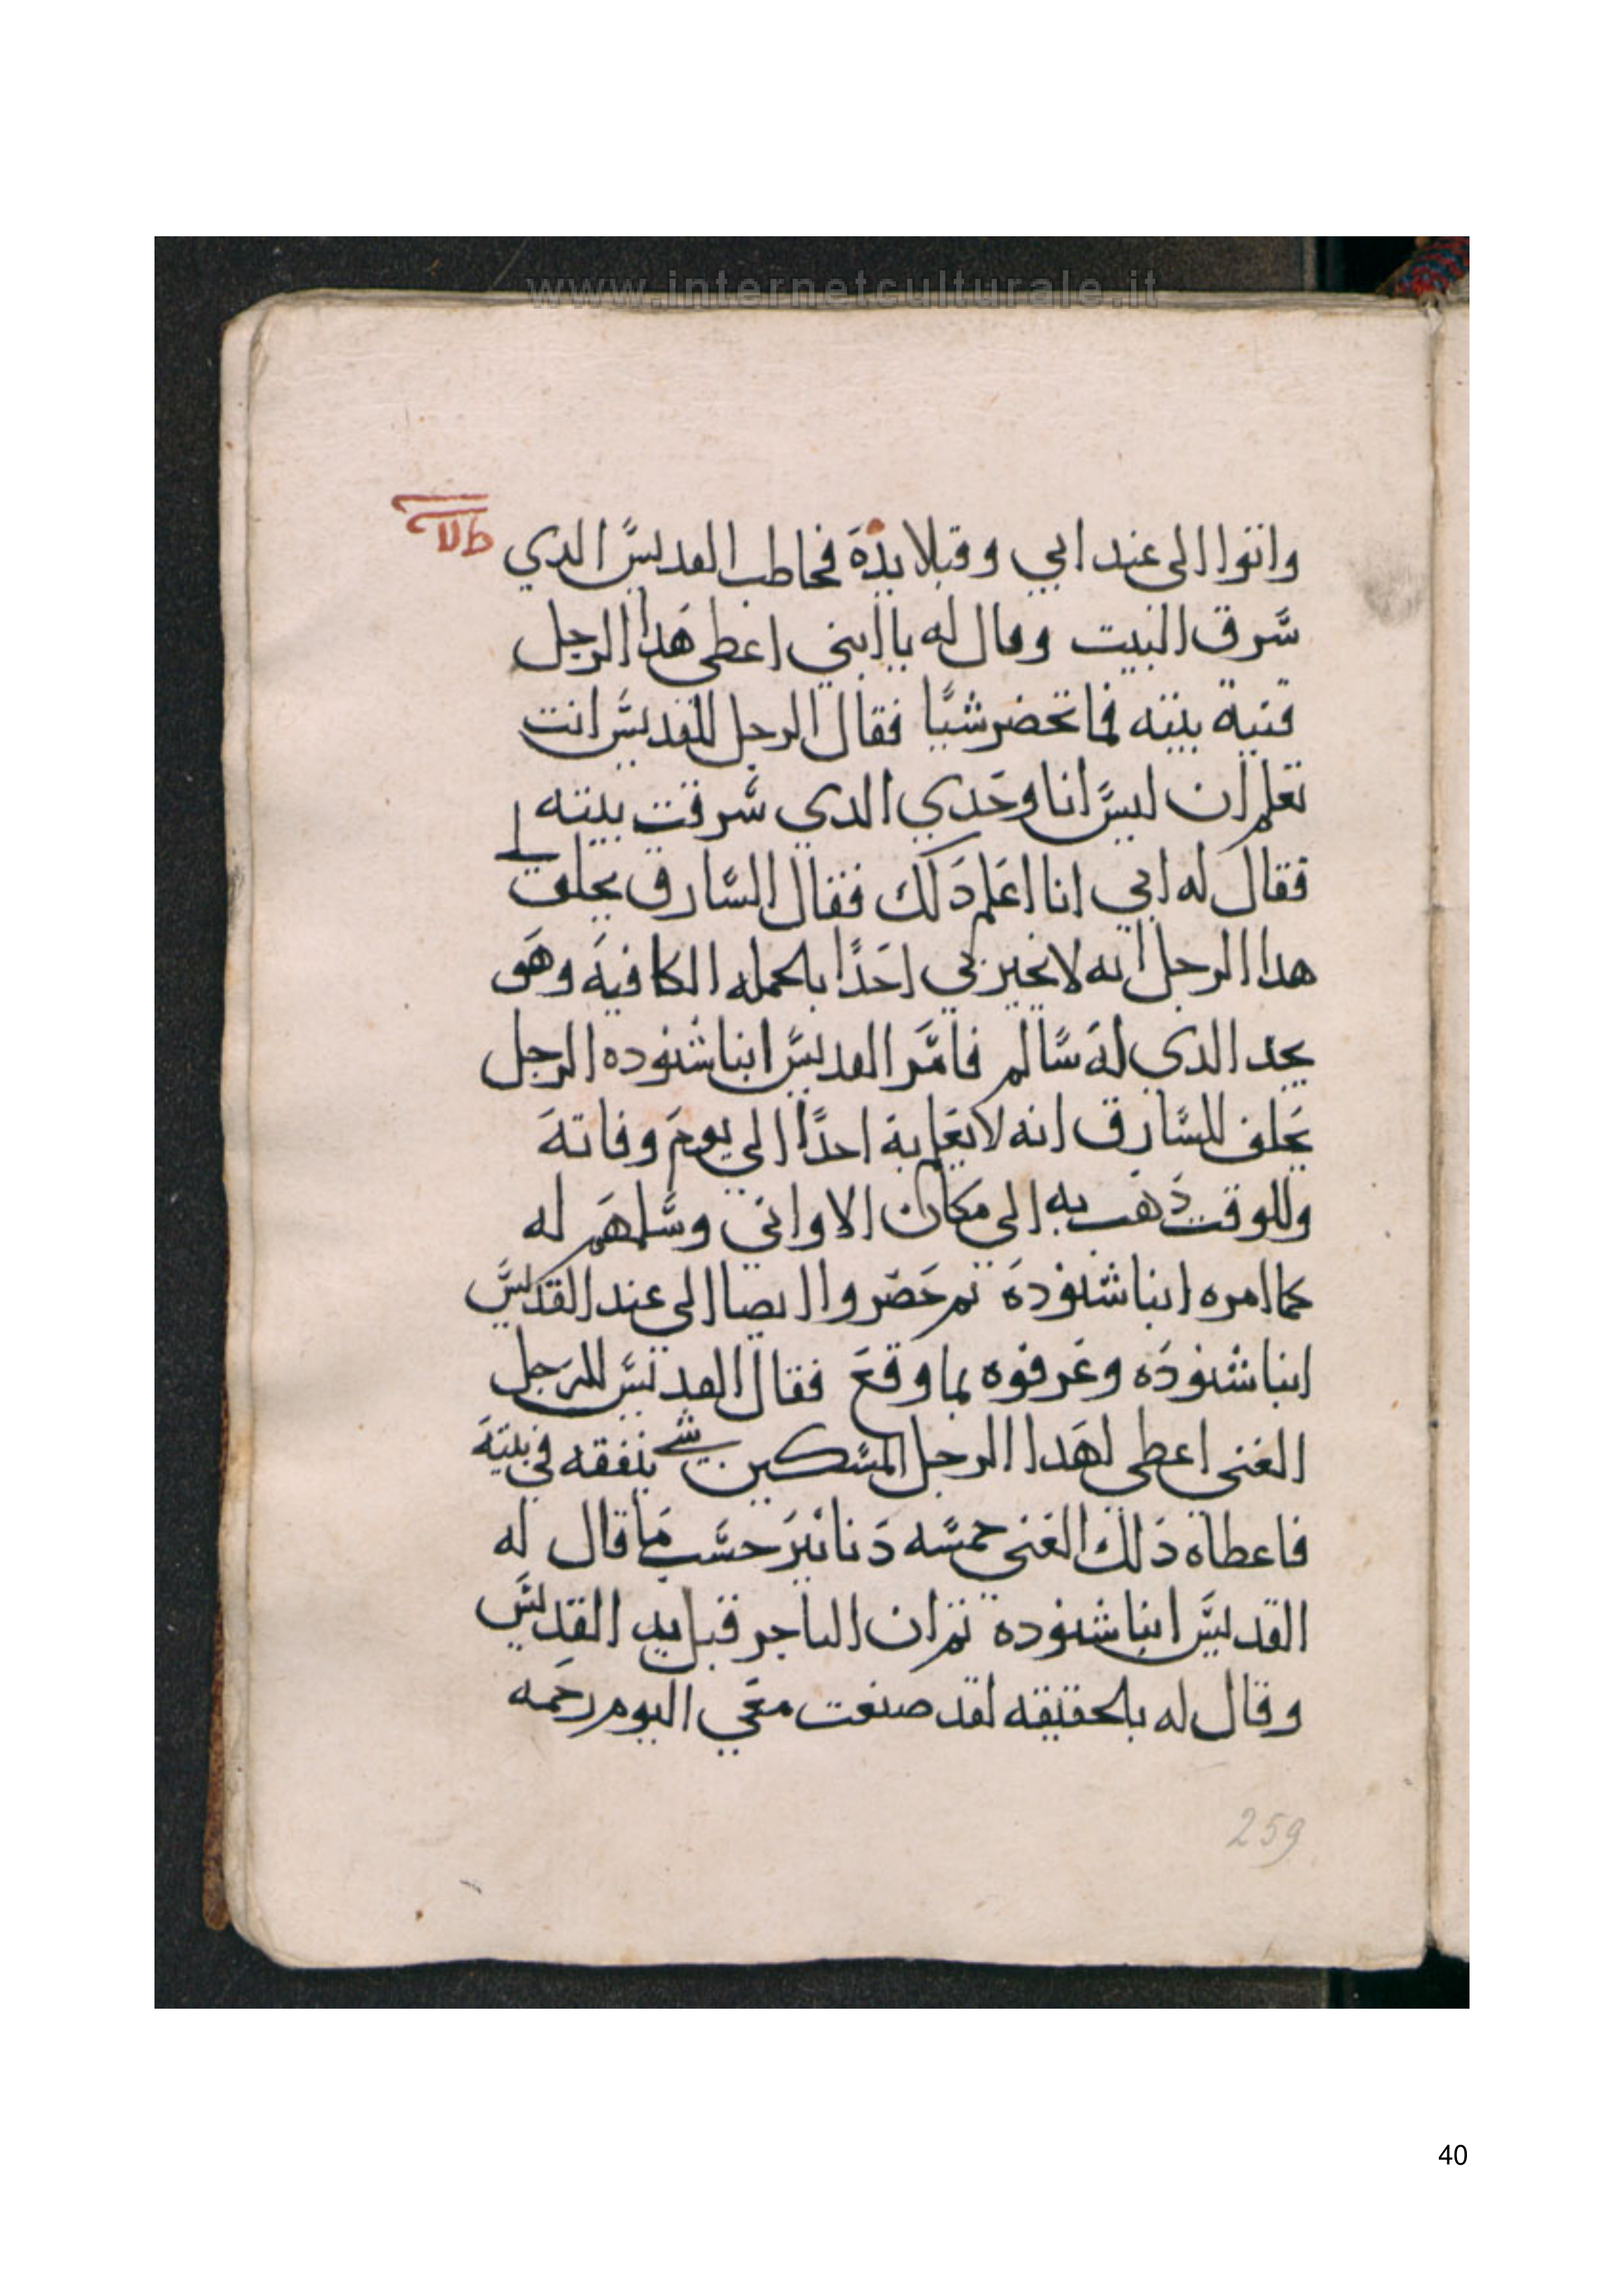 www.internetculturale.it
واتوا الى عند ابي وقبلا يدة فخاطب القديس الدي
سرق البيت وقال له يا ابني اعطي هدا الرجل
قنية بيته فما تحضر شيًا فقال الرجل للقديس انت
تعلم ان ليس انا وحدي الدي سرقت بيته
فقال له ابي انا اعلم دلك فقال السارق يحلف لي
هدا الرجل انه لا يخبر بي احدًا بالجمله الكافيه وهو
يجد الدي له سالم فامر القديس انبا شنوده الرجل
يحلف للسارق انه لا يعلم به احدًا الي يوم وفاته
وللوقت دهب به الى مكان الاواني وسلمهم له
كما امره انبا شنودة تم حضروا ايضا الى عند القديس
انبا شنوده وعرفوه بما وقع فقال القديس للرجل
الغني اعطي لهدا الرجل المسكين شي ينفقه في بيته
فاعطاة دلك الغني خمسه دنانير حسب ما قال له
القديس انبا شنودة تم ان التاجر قبل يد القديس
وقال له بالحقيقه لقد صنعت معي اليوم رحمه
259
40